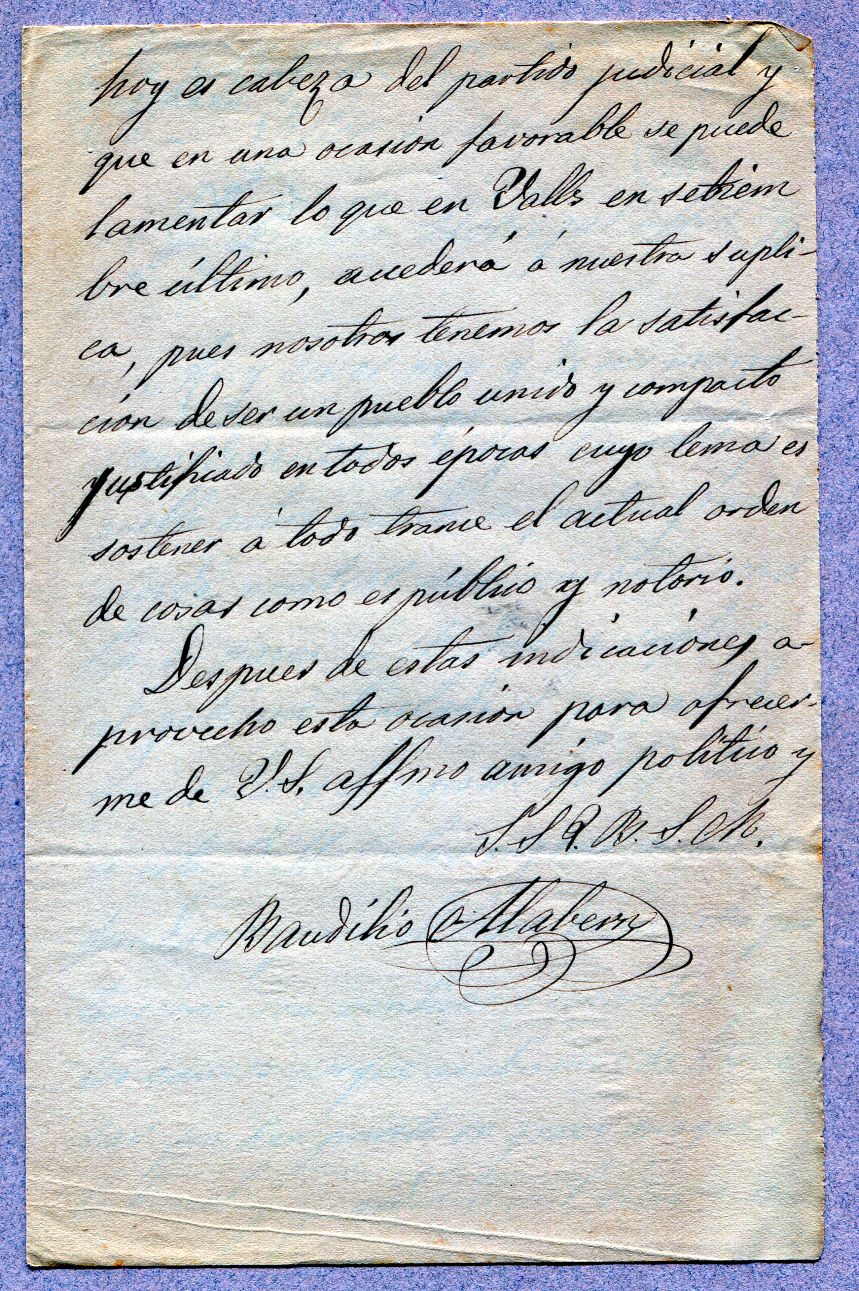 hoy es cabeza del partido judicial y
que en una ocasion favorable se puede
lamentar lo que en Valls en setiem
bre último, accederá á nuestra supli-
ca, pues nosotros tenemos la satisfac-
cion de ser un pueblo unido y compacto
justificado en todas épocas cuyo lema es
sostener á todo trance el actual orden
de cosas como es público y notorio.
Despues de estas indicaciones a-
provecho esta ocasion para ofrecer-
me de V.S. affmo amigo politico y
S. S. Q. B. S. M.
Baudilio